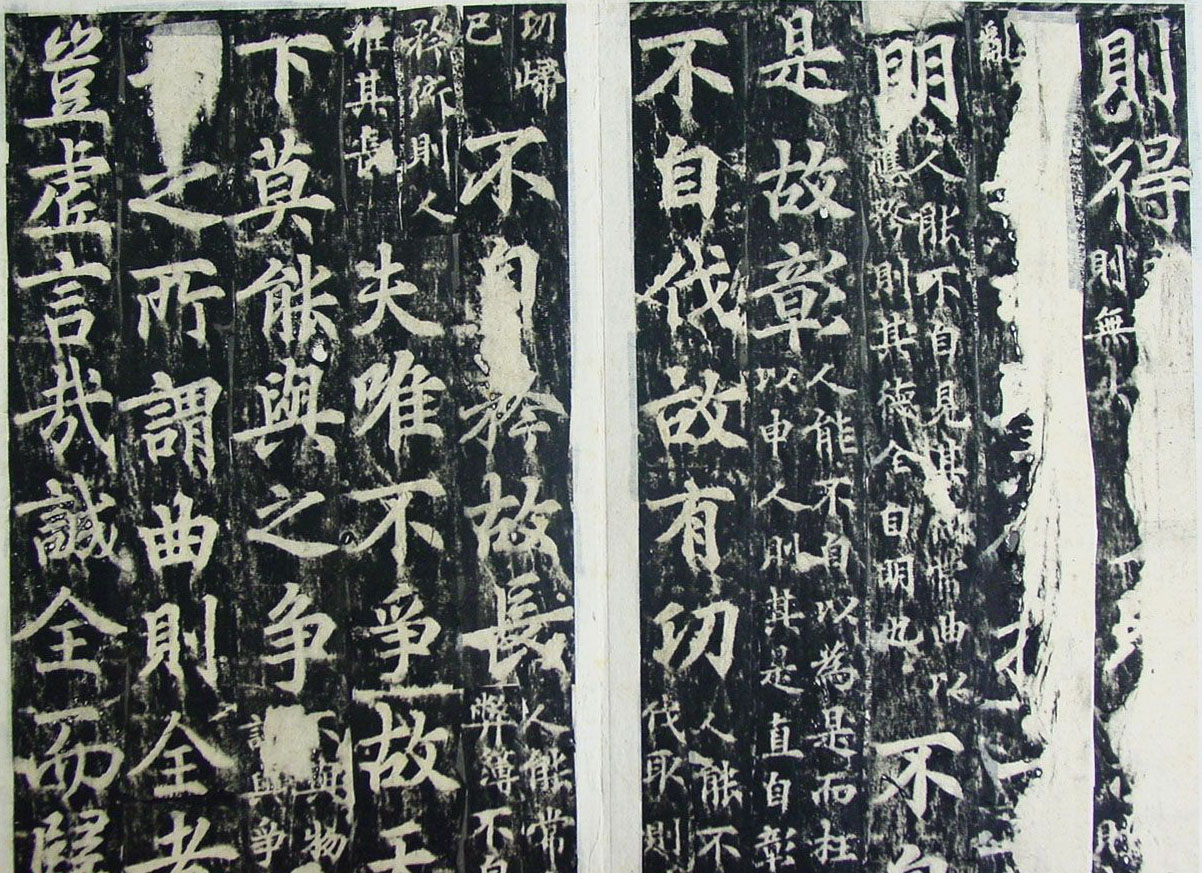 則得
則無
亂
明
人能不自見其常曲以
矜則其德全自明也
不自
是故章
人能不自以為是而枉
以申人則其是直自彰
不自伐故有功
人能不
伐取則
功歸
已
不自矜故長
人能常
弊薄不自
矜衒則人
推其長
夫唯不爭故天
下莫能與之争
不與物
與爭
之所謂曲則全者
豈虛言哉誠全而歸